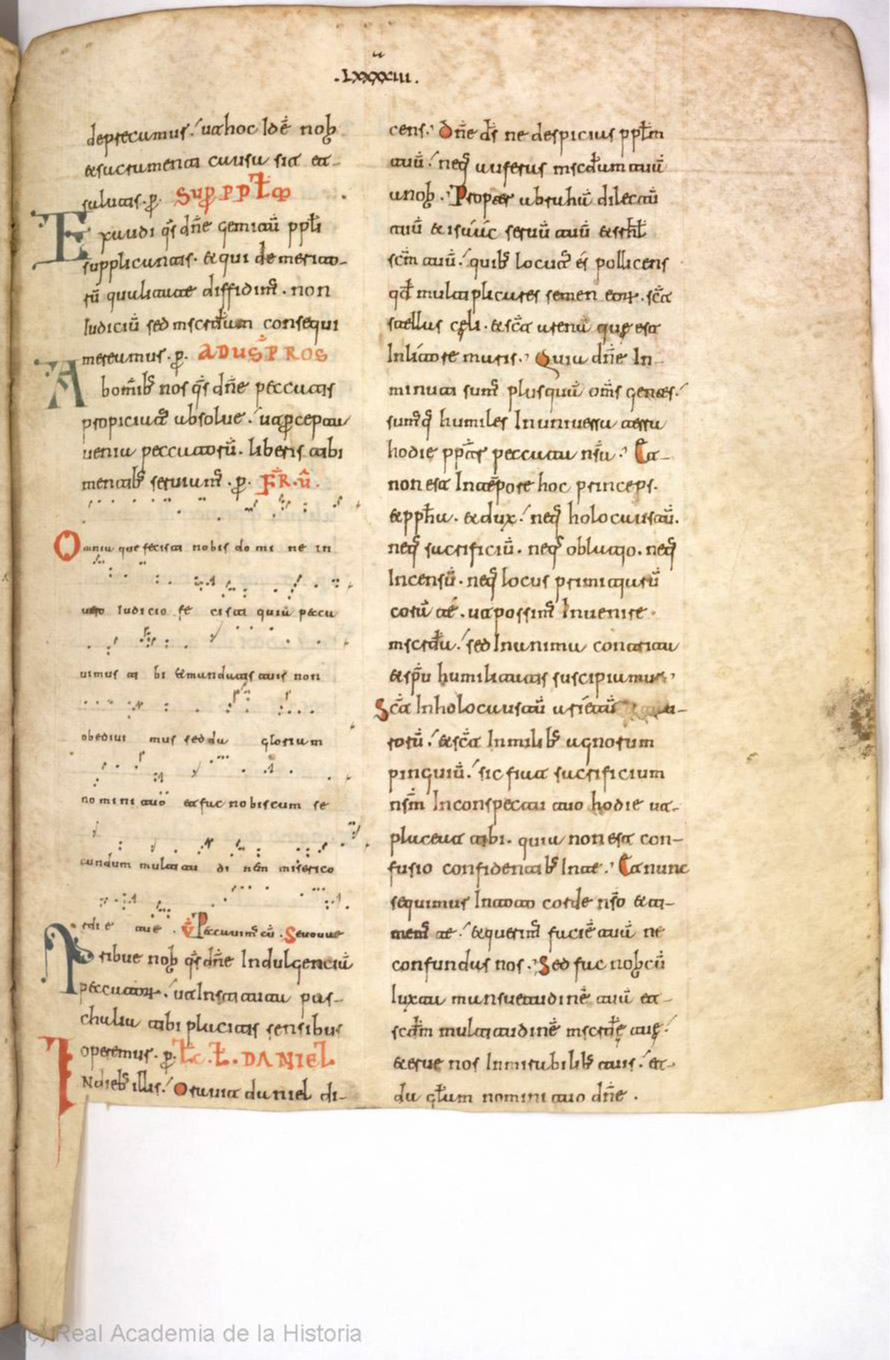 .LXXXXIII.
deprecamur. ut hoc idē nob̄
& sacramenta cursu sit et
saluatis. p̄. SUP̄ PPŁM
Exaudi q̄s dn̄e gemitū ppłi
supplicantis. & qui de merito-
rū qualitate diffidim̄. non
Iudiciū sed mscrdiam consequi
mereamur. p̄. AD USP̄ROS
Ab om̄ib; nos q̄s dn̄e peccatis
propiciat' absolue. ut p̄cepta
uenia peccatorū. liberis tibi
mentib; seruiam̄. p̄. FR̄. ū.
Omnia que fecisti nobis do mi ne in
uero Iudicio fe cisti quia pecca
uimus ti bi & mandatis tuis non
obediui mus sed da gloriam
nomini tuo et fac nobiscum se
cundum multitu di nem miserico
rdi e tue. V̄ Peccauim̄ cū. Seuouae
Tribue nob̄ q̄s dn̄e Indulgentiā
peccatorꝝ. ut Instituta pas-
chalia tibi placitis sensibus
operemur. p̄. Łc. Ł. DANIEL
Indieb; illis. Orauit daniel di-
cens. Dn̄e ds̄ ne despicias ppłm
tuū. neq; auferas mscđiam tuā
a nob̄. Propter abrahā dilectū
tuū & isaác seruū tuū & isrł
scm̄ tuū. quib; locut' es pollicens
qđ multiplicares semen eorꝝ. sic̄
stellas cęli. & sic̄ arena que est
In litore maris. Quia dn̄e In-
minuti sum̄ plusquā om̄s gentes.
sum̄q; humiles In uniuersa terra
hodie ppt̄ peccata nr̄a. Et
non est In tēpore hoc princeps.
& ppha. & dux. neq; holocaustū.
neq; sacrificiū. neq; oblatio. neq;
Incensū. neq; locus primitiarū
corā te. ut possim̄ Inuenire
mscrđia. sed In animo contrito
& sp̄u humilitatis suscipiamur.
Sic̄ In holocaustū arietū & tau-
rorū. & sic̄ In milib; agnorum
pinguiū. sic fiat sacrificium
nsm̄ In conspectu tuo hodie ut
placeat tibi. quia non est con-
fusio confidentib; In te. Et nunc
sequimur In toto corde nr̄o & ti-
mem̄ te. & querim̄ faciē tuā ne
confundas nos. Sed fac nob̄cū
Iuxta mansuetudinē tuā et
scđm multitudinē mscrđie tuę.
& erue nos In mirabilib; tuis. et
da głam nomini tuo dn̄e.
(c) Real Academia de la Historia